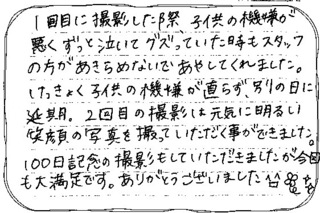 1回目に撮影した際、子供の機嫌が
悪くずっと泣いてグズっていた時もスタッフ
の方があきらめないであやしてくれました。
けっきょく子供の機嫌が直らず、別の日に
延期。2回目の撮影は元気に明るい
笑顔の写真を撮っていただく事ができました。
100日記念の撮影もしていただきましたが今回
も大満足です。ありがとうございました^^